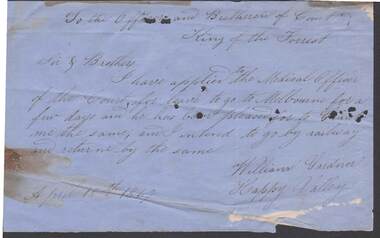 To the Officers and Bretheren of Court
King of the Forrest
Sir & Brothers
I have applied the Medical Officer
of the Court for leave to go to Melbourne for a
few days an he has been pleased to
me the same, an I intend to go by railway
and returne by the same
William Gardner
Happy Valley
April 18th